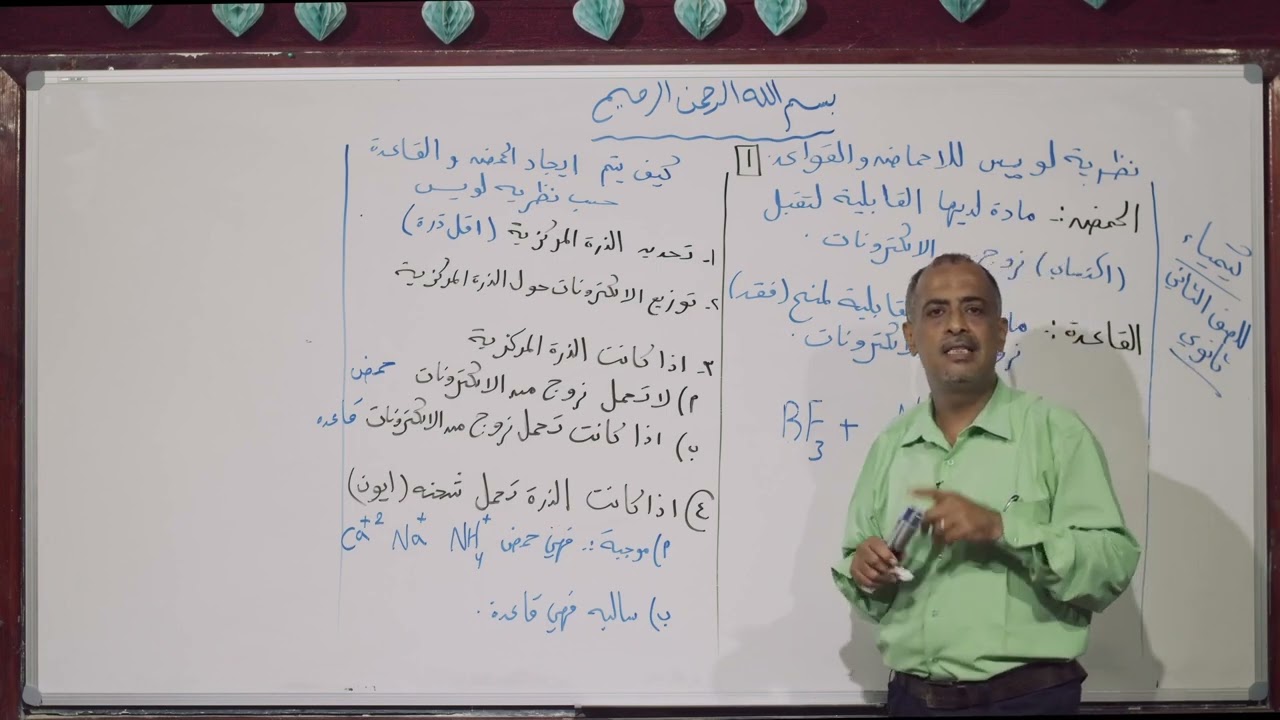 بسم الله الرحمن الرحيم
كيمياء
للصف الثاني
ثانوي
نظرية لويس للاحماض والقواعد 1
الحمض :- مادة لديها القابلية لتقبل
(اكتساب) زوج الالكترونات .
القاعدة :- القابلية لمنح (فقد)
الالكترونات .
BF3 +
كيف يتم ايجاد الحمض والقاعدة
حسب نظريه لويس
1- تحديد الذرة المركزية (اقل ذرة)
2- توزيع الالكترونات حول الذرة المركزية
3- اذا كانت الذرة المركزية
م) لا تحمل زوج من الالكترونات حمض
ب) اذا كانت تحمل زوج من الالكترونات قاعده
٤) اذا كانت الذرة تحمل شحنه (ايون)
م) موجبة :- فهي حمض NH4+ Na+ Ca+2
ب) سالبه فهي قاعدة .